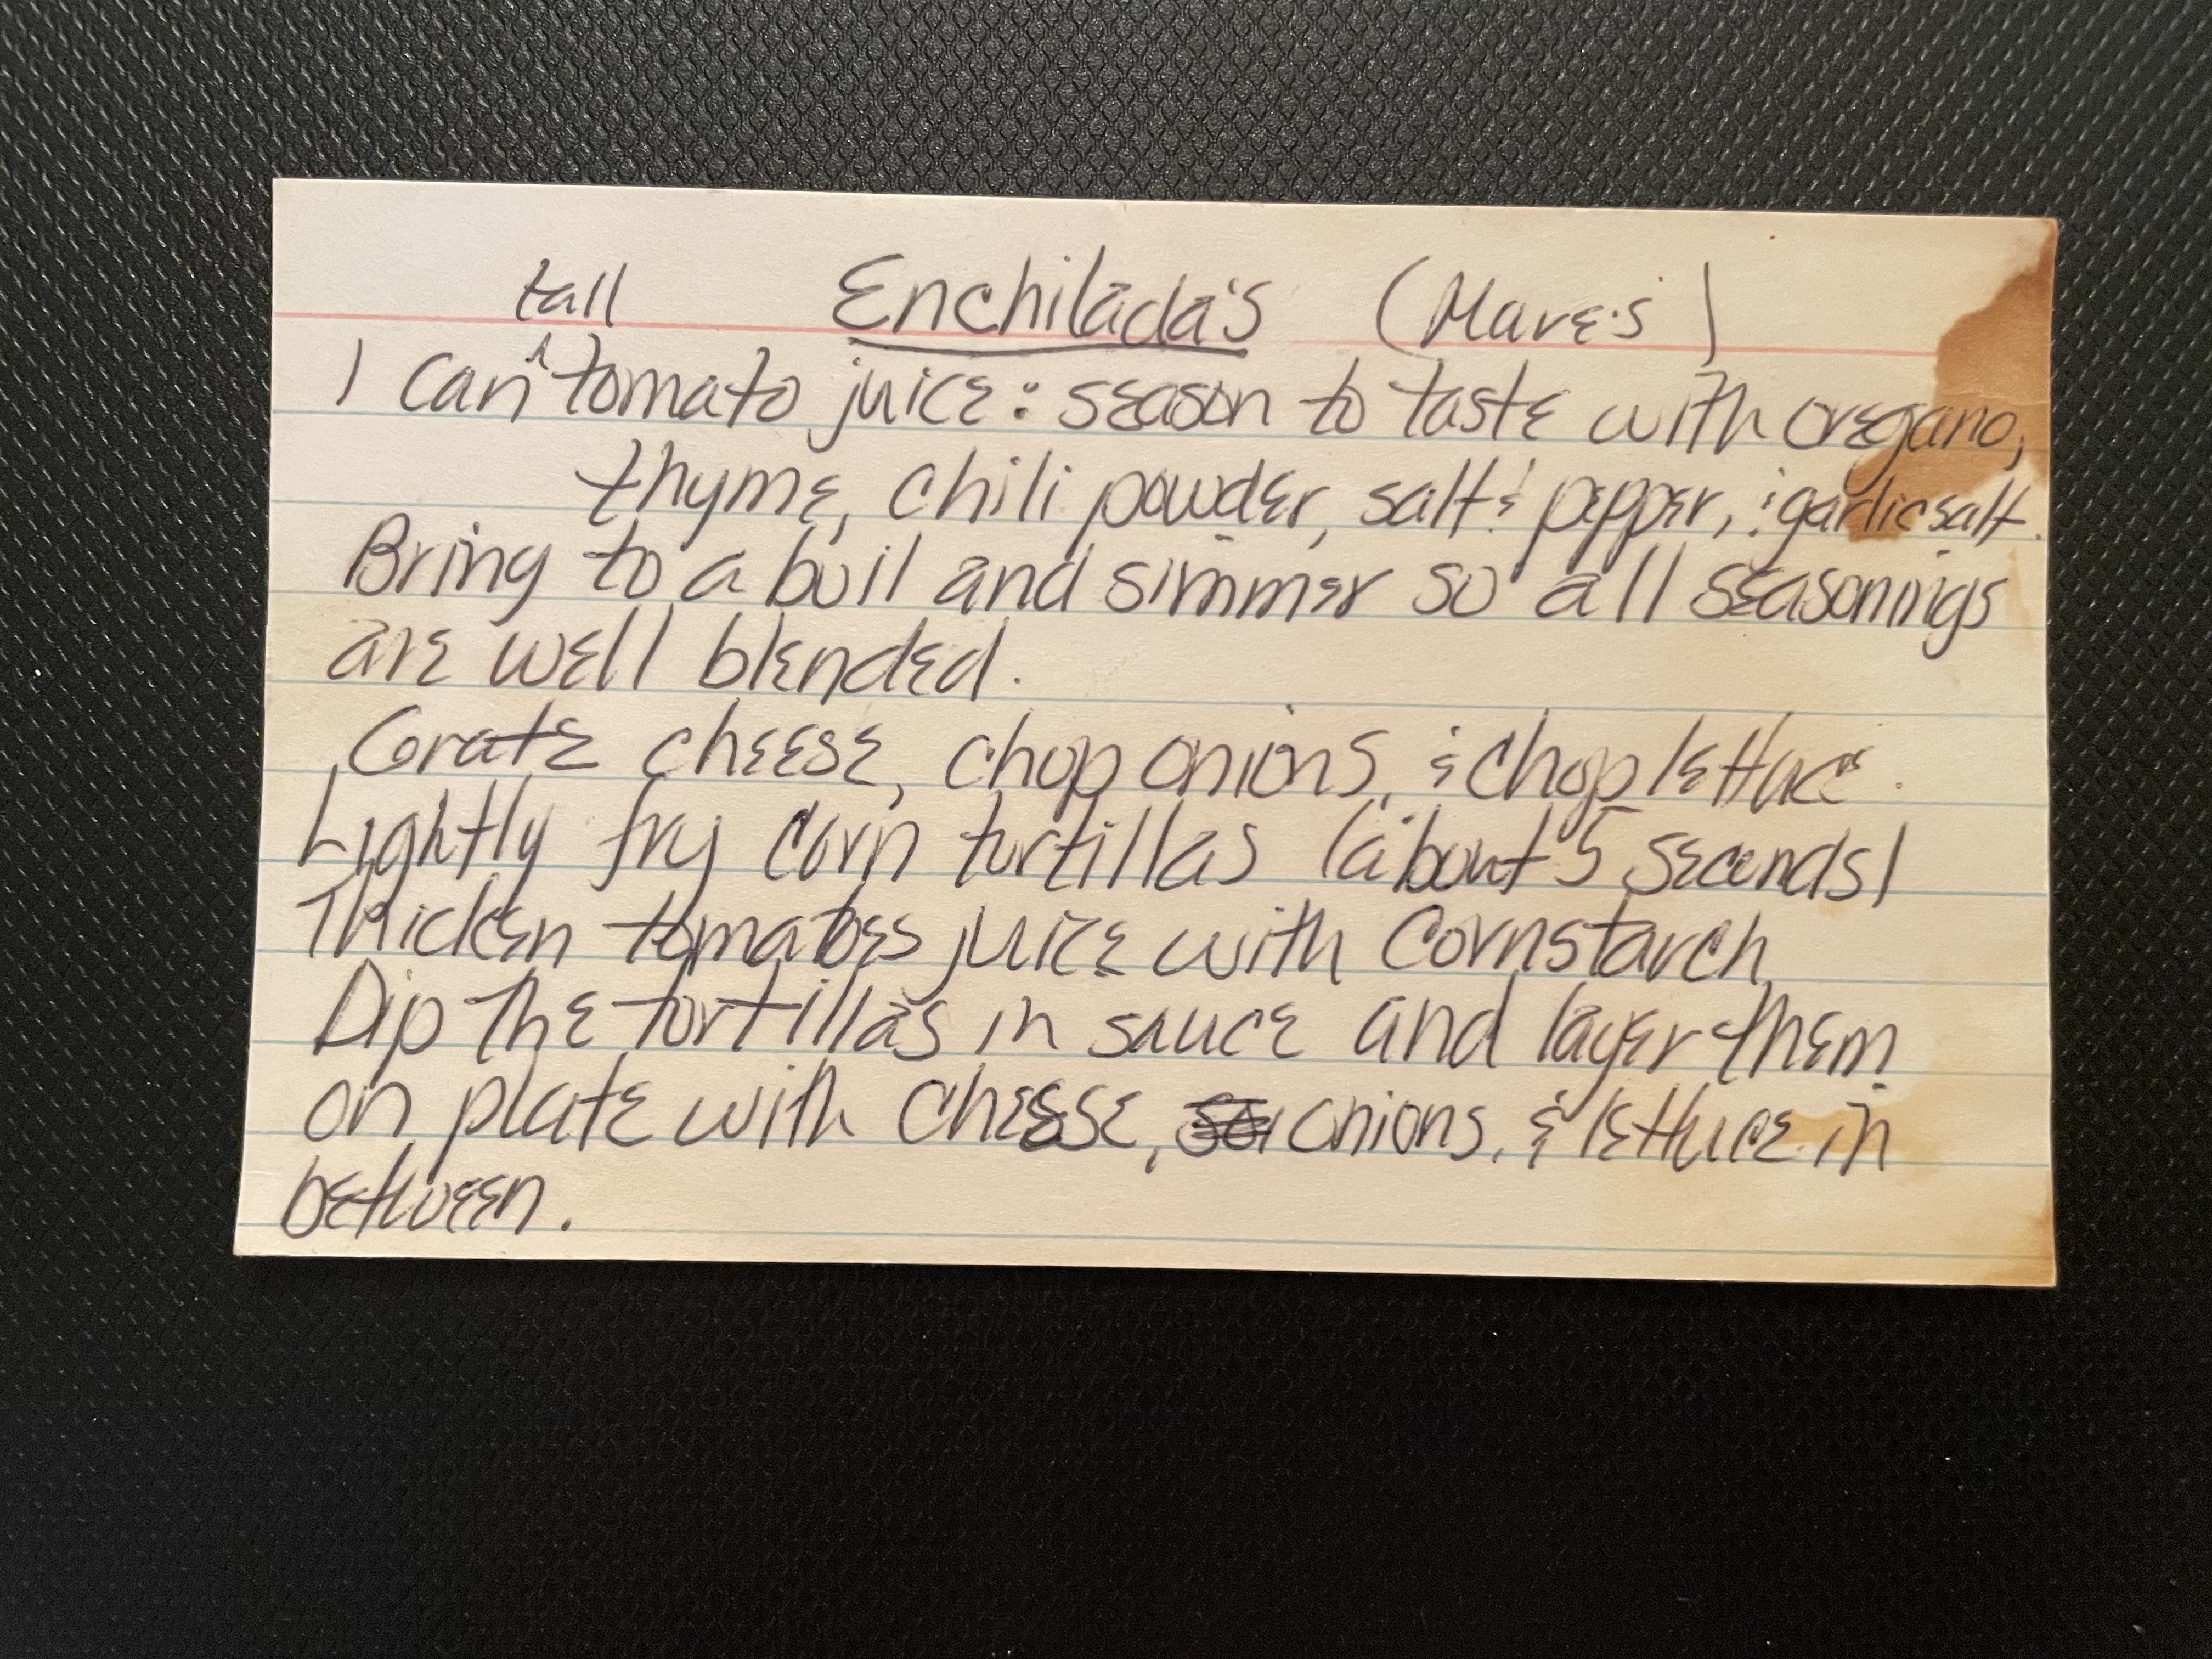 Enchilada's (Mare's)
1 can tall tomato juice: season to taste with oregano,
thyme, chili powder, salt & pepper, & garlic salt.
Bring to a boil and simmer so all seasonings
are well blended.
Grate cheese, chop onions, & chop lettuce.
Lightly fry corn tortillas (about 5 seconds)
Thicken tomatoes juice with Cornstarch
Dip the tortillas in sauce and layer them
on plate with cheese, onions, & lettuce in
between.